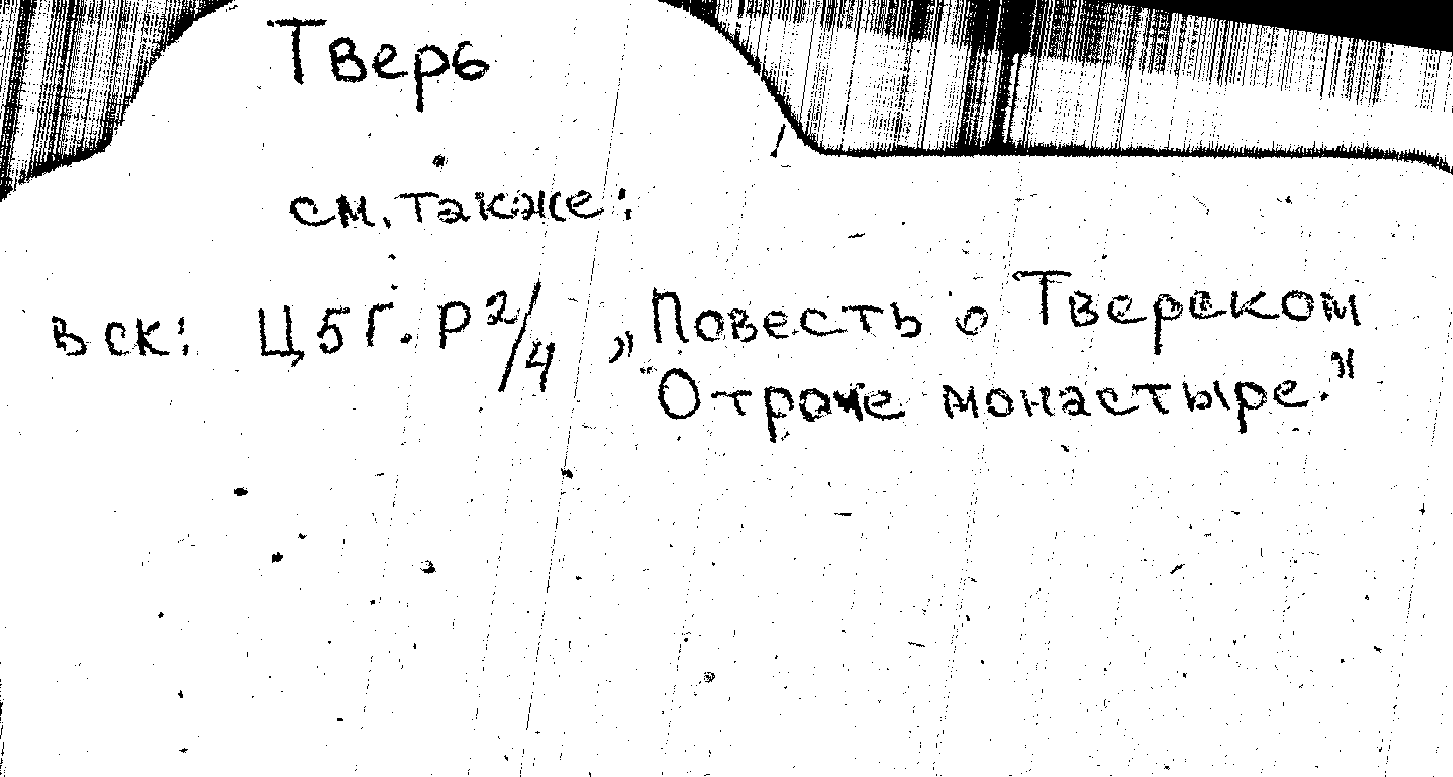 Тверь
см. также:
в ск: Ц5Г. Р 2/4 „Повесть о Тверском
Отроче монастыре."